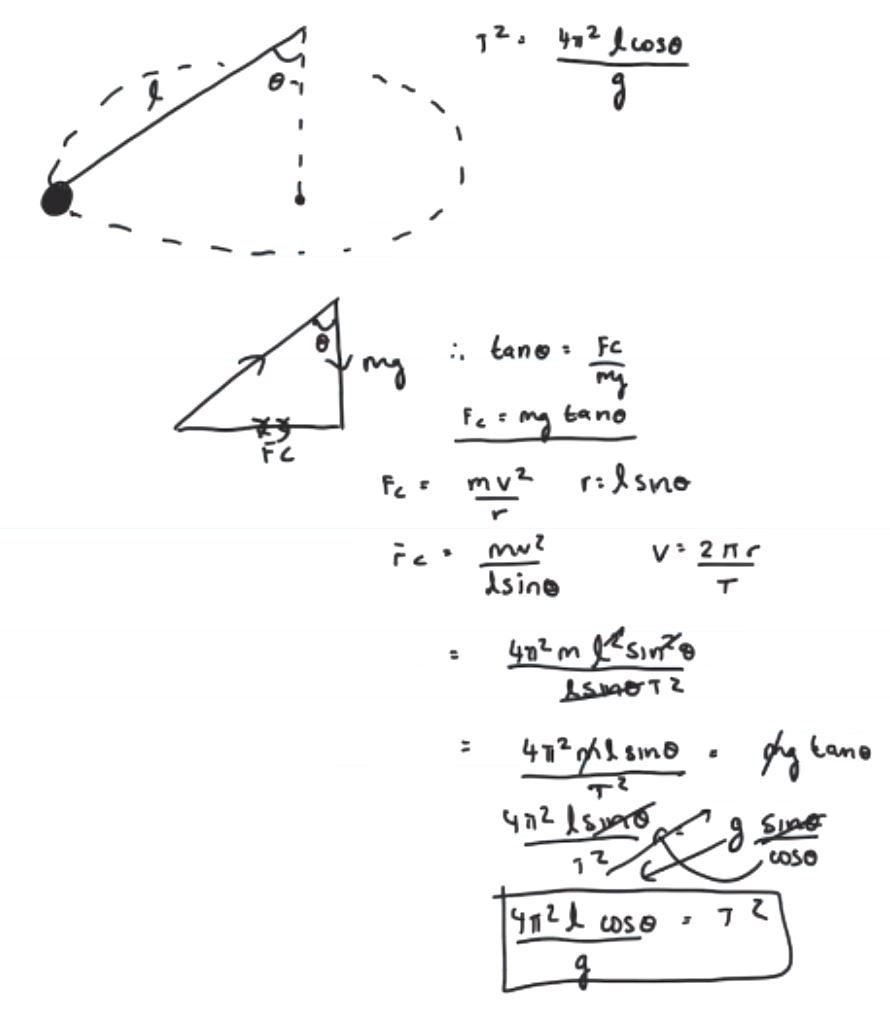 T² = 4π² l cosθ / g
l
θ
θ
mg
Fc
∴ tanθ = Fc / mg
Fc = mg tanθ
Fc = mv² / r   r = l snθ
Fc = mv² / l sinθ   V = 2πr / T
= 4π² m l² sin²θ / l sinθ T²
= 4π² m l sinθ / T² = mg tanθ
4π² l sinθ / T² = g sinθ / cosθ
4π² l cosθ / g = T²